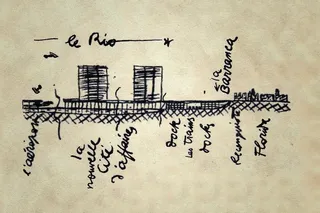 le Rio
la
Barranca
l'aéroport
la
nouvelle
Cité
d'affaires
dock
les trains
docks
Florida